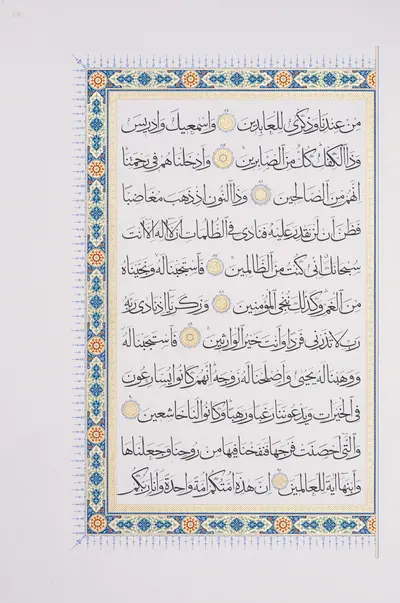 مِنْ عِنْدِنَا وَذِكْرَىٰ لِلْعَابِدِينَ وَإِسْمَٰعِيلَ وَإِدْرِيسَ
وَذَا الْكِفْلِ كُلٌّ مِنَ الصَّابِرِينَ وَأَدْخَلْنَاهُمْ فِي رَحْمَتِنَا
إِنَّهُمْ مِنَ الصَّالِحِينَ وَذَا النُّونِ إِذْ ذَهَبَ مُغَاضِبًا
فَظَنَّ أَنْ لَنْ نَقْدِرَ عَلَيْهِ فَنَادَىٰ فِي الظُّلُمَاتِ أَنْ لَا إِلَٰهَ إِلَّا أَنْتَ
سُبْحَانَكَ إِنِّي كُنْتُ مِنَ الظَّالِمِينَ فَاسْتَجَبْنَا لَهُ وَنَجَّيْنَاهُ
مِنَ الْغَمِّ وَكَذَٰلِكَ نُنْجِي الْمُؤْمِنِينَ وَزَكَرِيَّا إِذْ نَادَىٰ رَبَّهُ
رَبِّ لَا تَذَرْنِي فَرْدًا وَأَنْتَ خَيْرُ الْوَارِثِينَ فَاسْتَجَبْنَا لَهُ
وَوَهَبْنَا لَهُ يَحْيَىٰ وَأَصْلَحْنَا لَهُ زَوْجَهُ إِنَّهُمْ كَانُوا يُسَارِعُونَ
فِي الْخَيْرَاتِ وَيَدْعُونَنَا رَغَبًا وَرَهَبًا وَكَانُوا لَنَا خَاشِعِينَ
وَالَّتِي أَحْصَنَتْ فَرْجَهَا فَنَفَخْنَا فِيهَا مِنْ رُوحِنَا وَجَعَلْنَاهَا
وَابْنَهَا آيَةً لِلْعَالَمِينَ إِنَّ هَٰذِهِ أُمَّتُكُمْ أُمَّةً وَاحِدَةً وَأَنَا رَبُّكُمْ